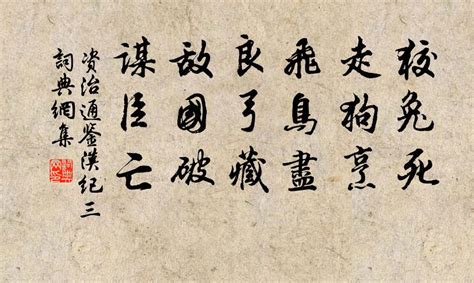 狡兔死
走狗烹
飛鳥盡
良弓藏
敵國破
謀臣亡
資治通鉴漢紀三
詞典網集